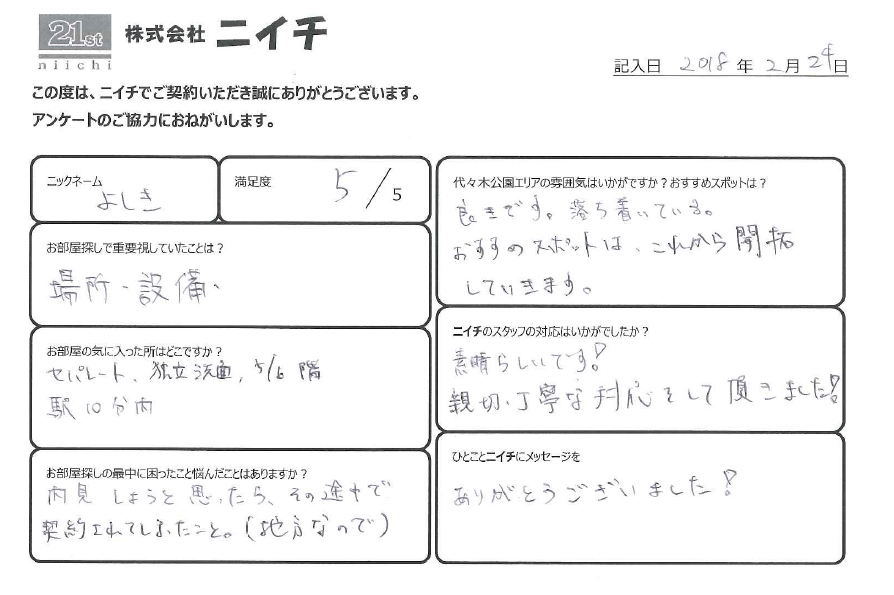 21st
niichi
株式会社 ニイチ
記入日 2018 年 2 月 24 日
この度は、ニイチでご契約いただき誠にありがとうございます。
アンケートのご協力におねがいします。
ニックネーム
よしき
満足度
5/5
お部屋探しで重要視していたことは？
場所・設備・
お部屋の気に入った所はどこですか？
セパレート、独立洗面, 5/6 階
駅10分内
お部屋探しの最中に困ったこと悩んだことはありますか？
内見しようと思ったら、その途中で
契約されてしまったこと。(地方なので)
代々木公園エリアの雰囲気はいかがですか？おすすめスポットは？
良きです。落ち着いている。
おすすめスポットは、これから開拓
していきます。
ニイチのスタッフの対応はいかがでしたか？
素晴らしいです!
親切、丁寧な対応をして頂きました!
ひとことニイチにメッセージを
ありがとうございました!